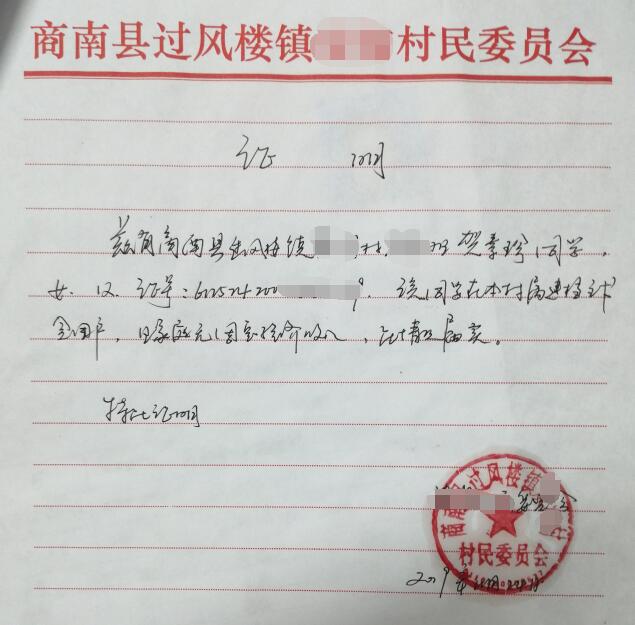 商南县过风楼镇村民委员会
证 明
兹有商南县过风楼镇村组贺孝珍同学，
女，汉，证号：61252420009，该同学在本村属建档立卡
贫困户，因家庭无固定经济收入，此情况属实。
特此证明
委会
商南县过风楼镇
村民委员会
2019年